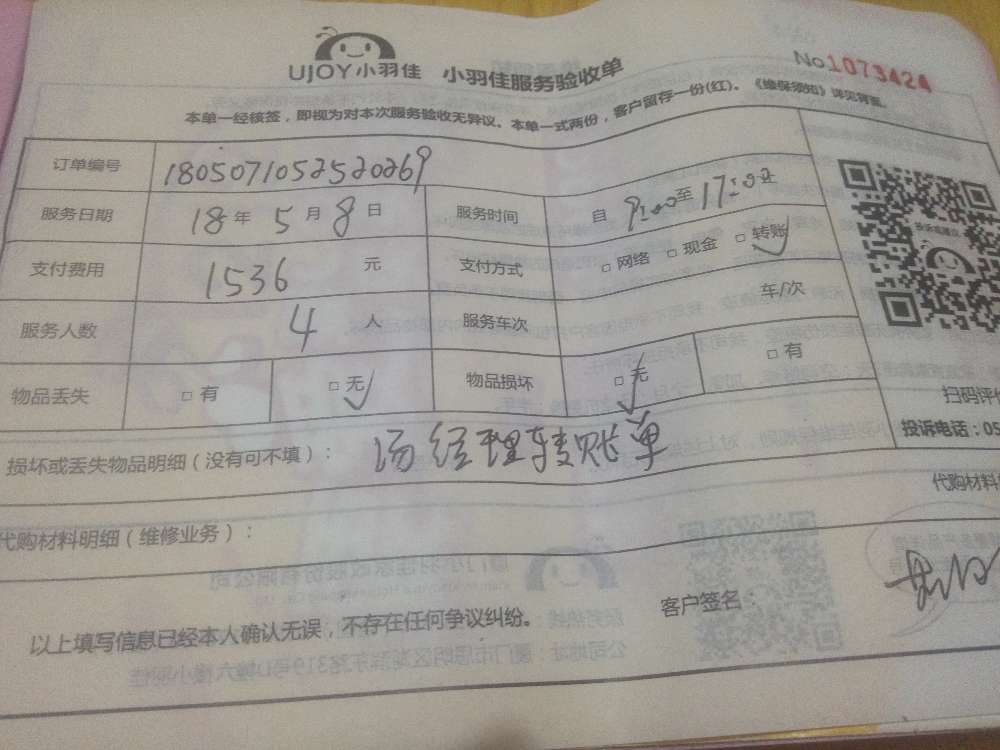 UJOY小羽佳 小羽佳服务验收单 No1073424
本单一经核签，即视为对本次服务验收无异议。本单一式两份，客户留存一份(红)。《维保须知》详见背面。
订单编号 1805071052520269
服务日期 18年5月8日 服务时间 自9:00至17:00止
支付费用 1536元 支付方式 □网络 □现金 □转账
服务人数 4人 服务车次 车/次
物品丢失 □有 □无 物品损坏 □无 □有
扫码评
投诉电话：05
损坏或丢失物品明细（没有可不填）： 汤经理转账单
代购材料
代购材料明细（维修业务）：
以上填写信息已经本人确认无误，不存在任何争议纠纷。 客户签名：